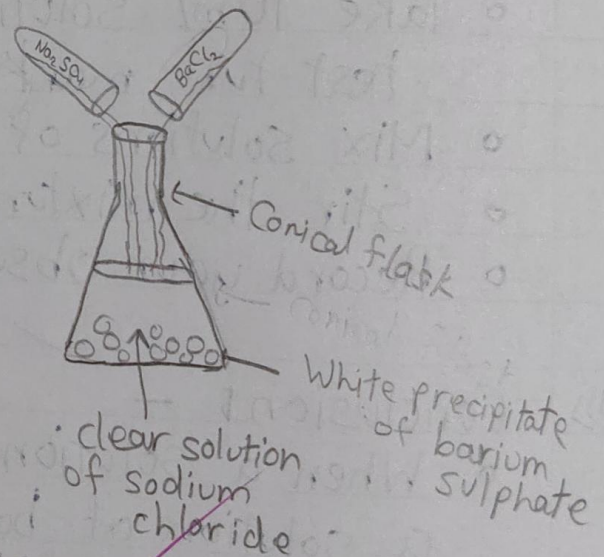 Na2SO4
BaCl2
Conical flask
White precipitate
of barium
sulphate
clear solution
of sodium
chloride